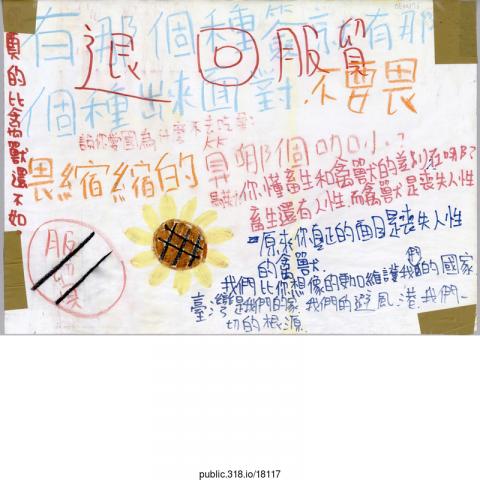 退回服貿
有那個種就有那
個種出來面對.不要畏
畏縮縮的
真的比禽獸還不如
請你當國為什麼不去吃屎
算哪個咖小.?
你懂畜生和禽獸的差別在哪?
畜生還有人性.而禽獸是喪失人性
原來你真正的面目是喪失人性
的禽獸.
我們比你想像的更加維護我們的國家
臺灣是我們的家.我們的避風港.我們一
切的根源.
服貿
public.318.io/18117